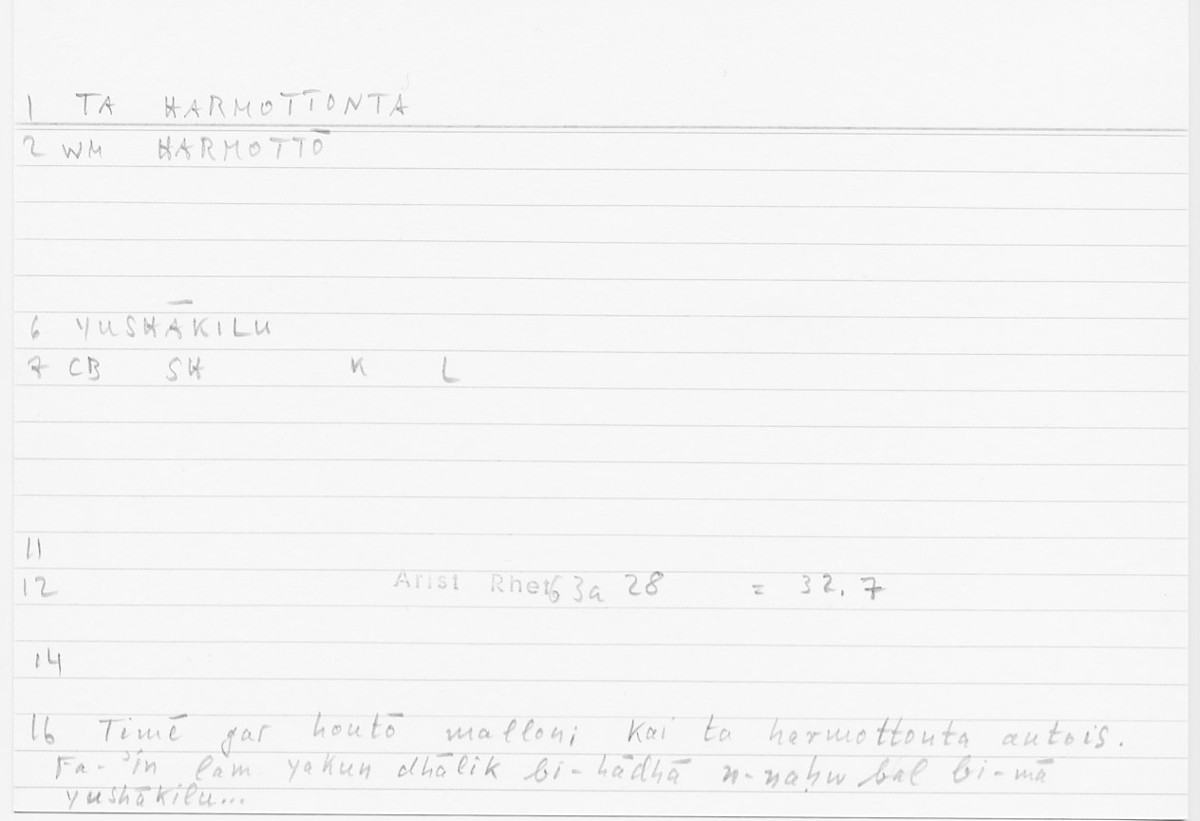 1 TA HARMOTTONTA
2 WM HARMOTTŌ
6 YUSHĀKILU
7 CB SH K L
11
12 Arist Rhet 63a 28 = 32, 7
14
16 Timē gar houtō mallon; kai ta harmottonta autois.
Fa-ʾin lam yakun dhālik bi-hādhā n-naḥw bal bi-mā
yushākilu...